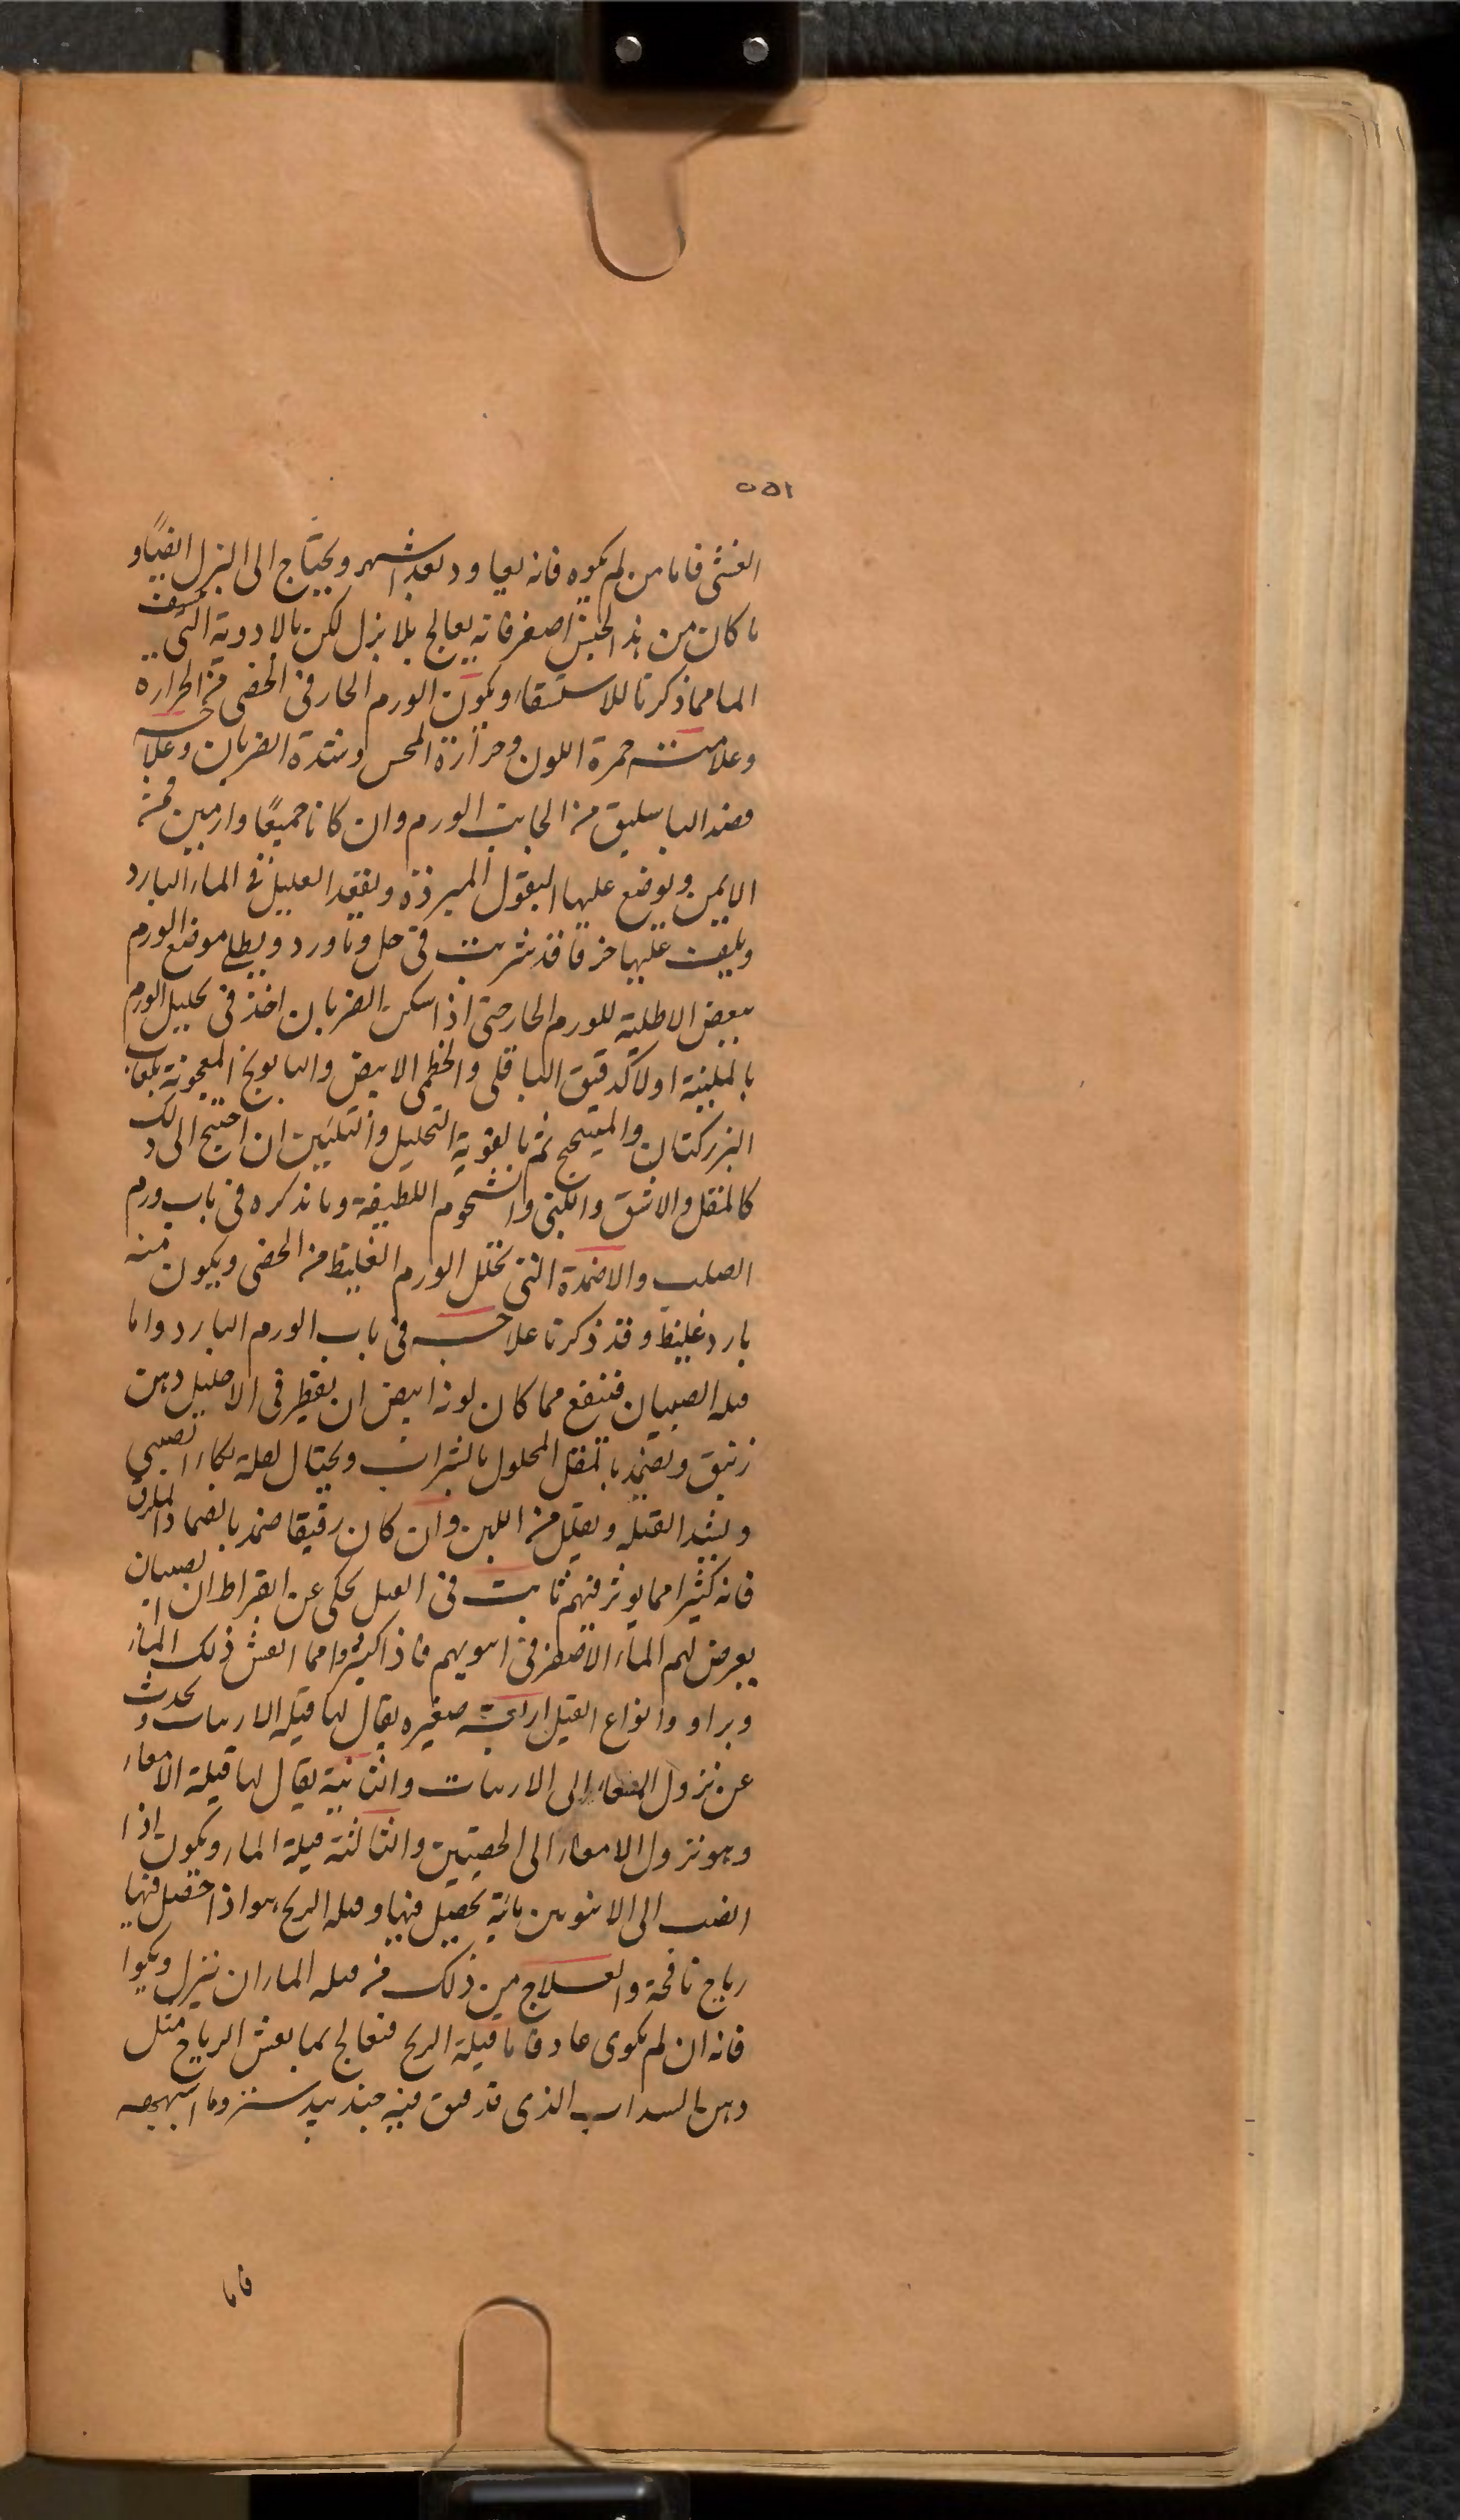 ١٥٥
الغشى فاما من لم يكوه فانه يعاود بعد اشهر ويحتاج الى البزل ايضًا و
ما كان من هذا الجنس اصغر فانه يعالج بلا بزل لكن بالادوية التى تنشف
الما مما ذكرنا للاستسقاء ويكون الورم الحار فى الخصى من الحرارة
وعلامته حمرة اللون وحرارة المحس وشدة الضربان وعلاجه
فصد الباسليق من الجانب الورم وان كانا جميعًا وارمين فمن
الايمن ويوضع عليها البقول المبردة ويقعد العليل فى الماء البارد
ويلقى عليها خرقا قد شربت فى خل وماورد ويطلى موضع الورم
ببعض الاطلية للورم الحار حتى اذا سكن الضربان اخذ فى تحليل الورم
بالملينة اولا كدقيق الباقلى والخطمى الابيض والبابونج المعجونة بلعاب
البزركتان والميبختج ثم بالقوية التحليل والتليين ان احتيج الى ذلك
كالمقل والاشق واللبنى والشحوم اللطيفة وما نذكره فى باب ورم
الصلب والاضمدة التى تحلل الورم الغليظ من الخصى ويكون منه
بارد غليظ وقد ذكرنا علاجه فى باب الورم البارد واما
قيله الصبيان فينفع مما كان لونه ابيض ان يقطر فى الاحليل دهن
زنبق وتضمد بالمقل المحلول بالشراب ويحتال لعلة بكاء الصبي
ويشد القيله ويقلل من اللبن وان كان رقيقا ضمد بالضماد
فانه كثيرا مما يوثر فيهم ثابت فى العمل يحكى عن ابقراط ان الصبيان
يعرض لهم الماء الاصفر فى فاذا اكبروا مما انفش ذلك الماء
وبراو وانواع القيل اربعة صغيره يقال لها قيله الاربيات وتحدث
عن نزول المعاء الى الاربيات والثانية يقال لها قيلة الامعاء
وهو نزول الامعاء الى الخصيتين والثالثة قيلة الماء ويكون اذا
انصب الى الانثيين مائية يحصل فيها وقيله الريح هو اذا حصل فيها
رياح نافخة والعلاج من ذلك فى قيله الماء ان تبزل ويكوا
فانه ان لم يكوى عاد فاما قيلة الريح فتعالج بما يفش الرياح مثل
دهن السداب الذى قد فتق فيه جندبيدستر وما اشبهه
فاما